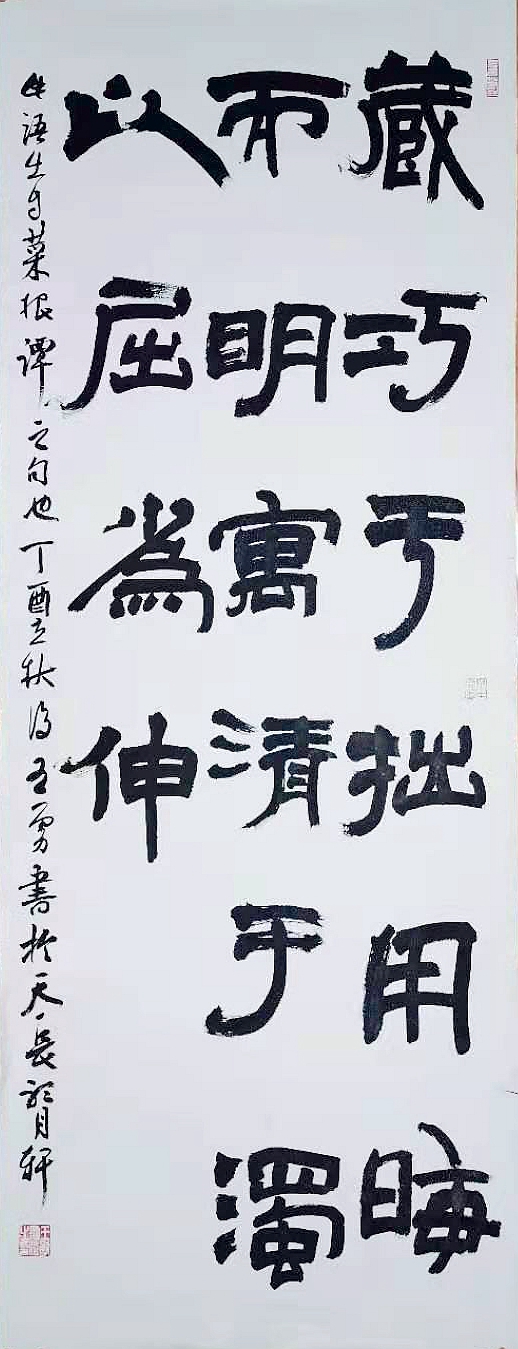 藏巧于拙用晦
而明寓清于濁
以屈為伸
此語出自菜根譚之句也丁酉立秋後王勇書於天長軒